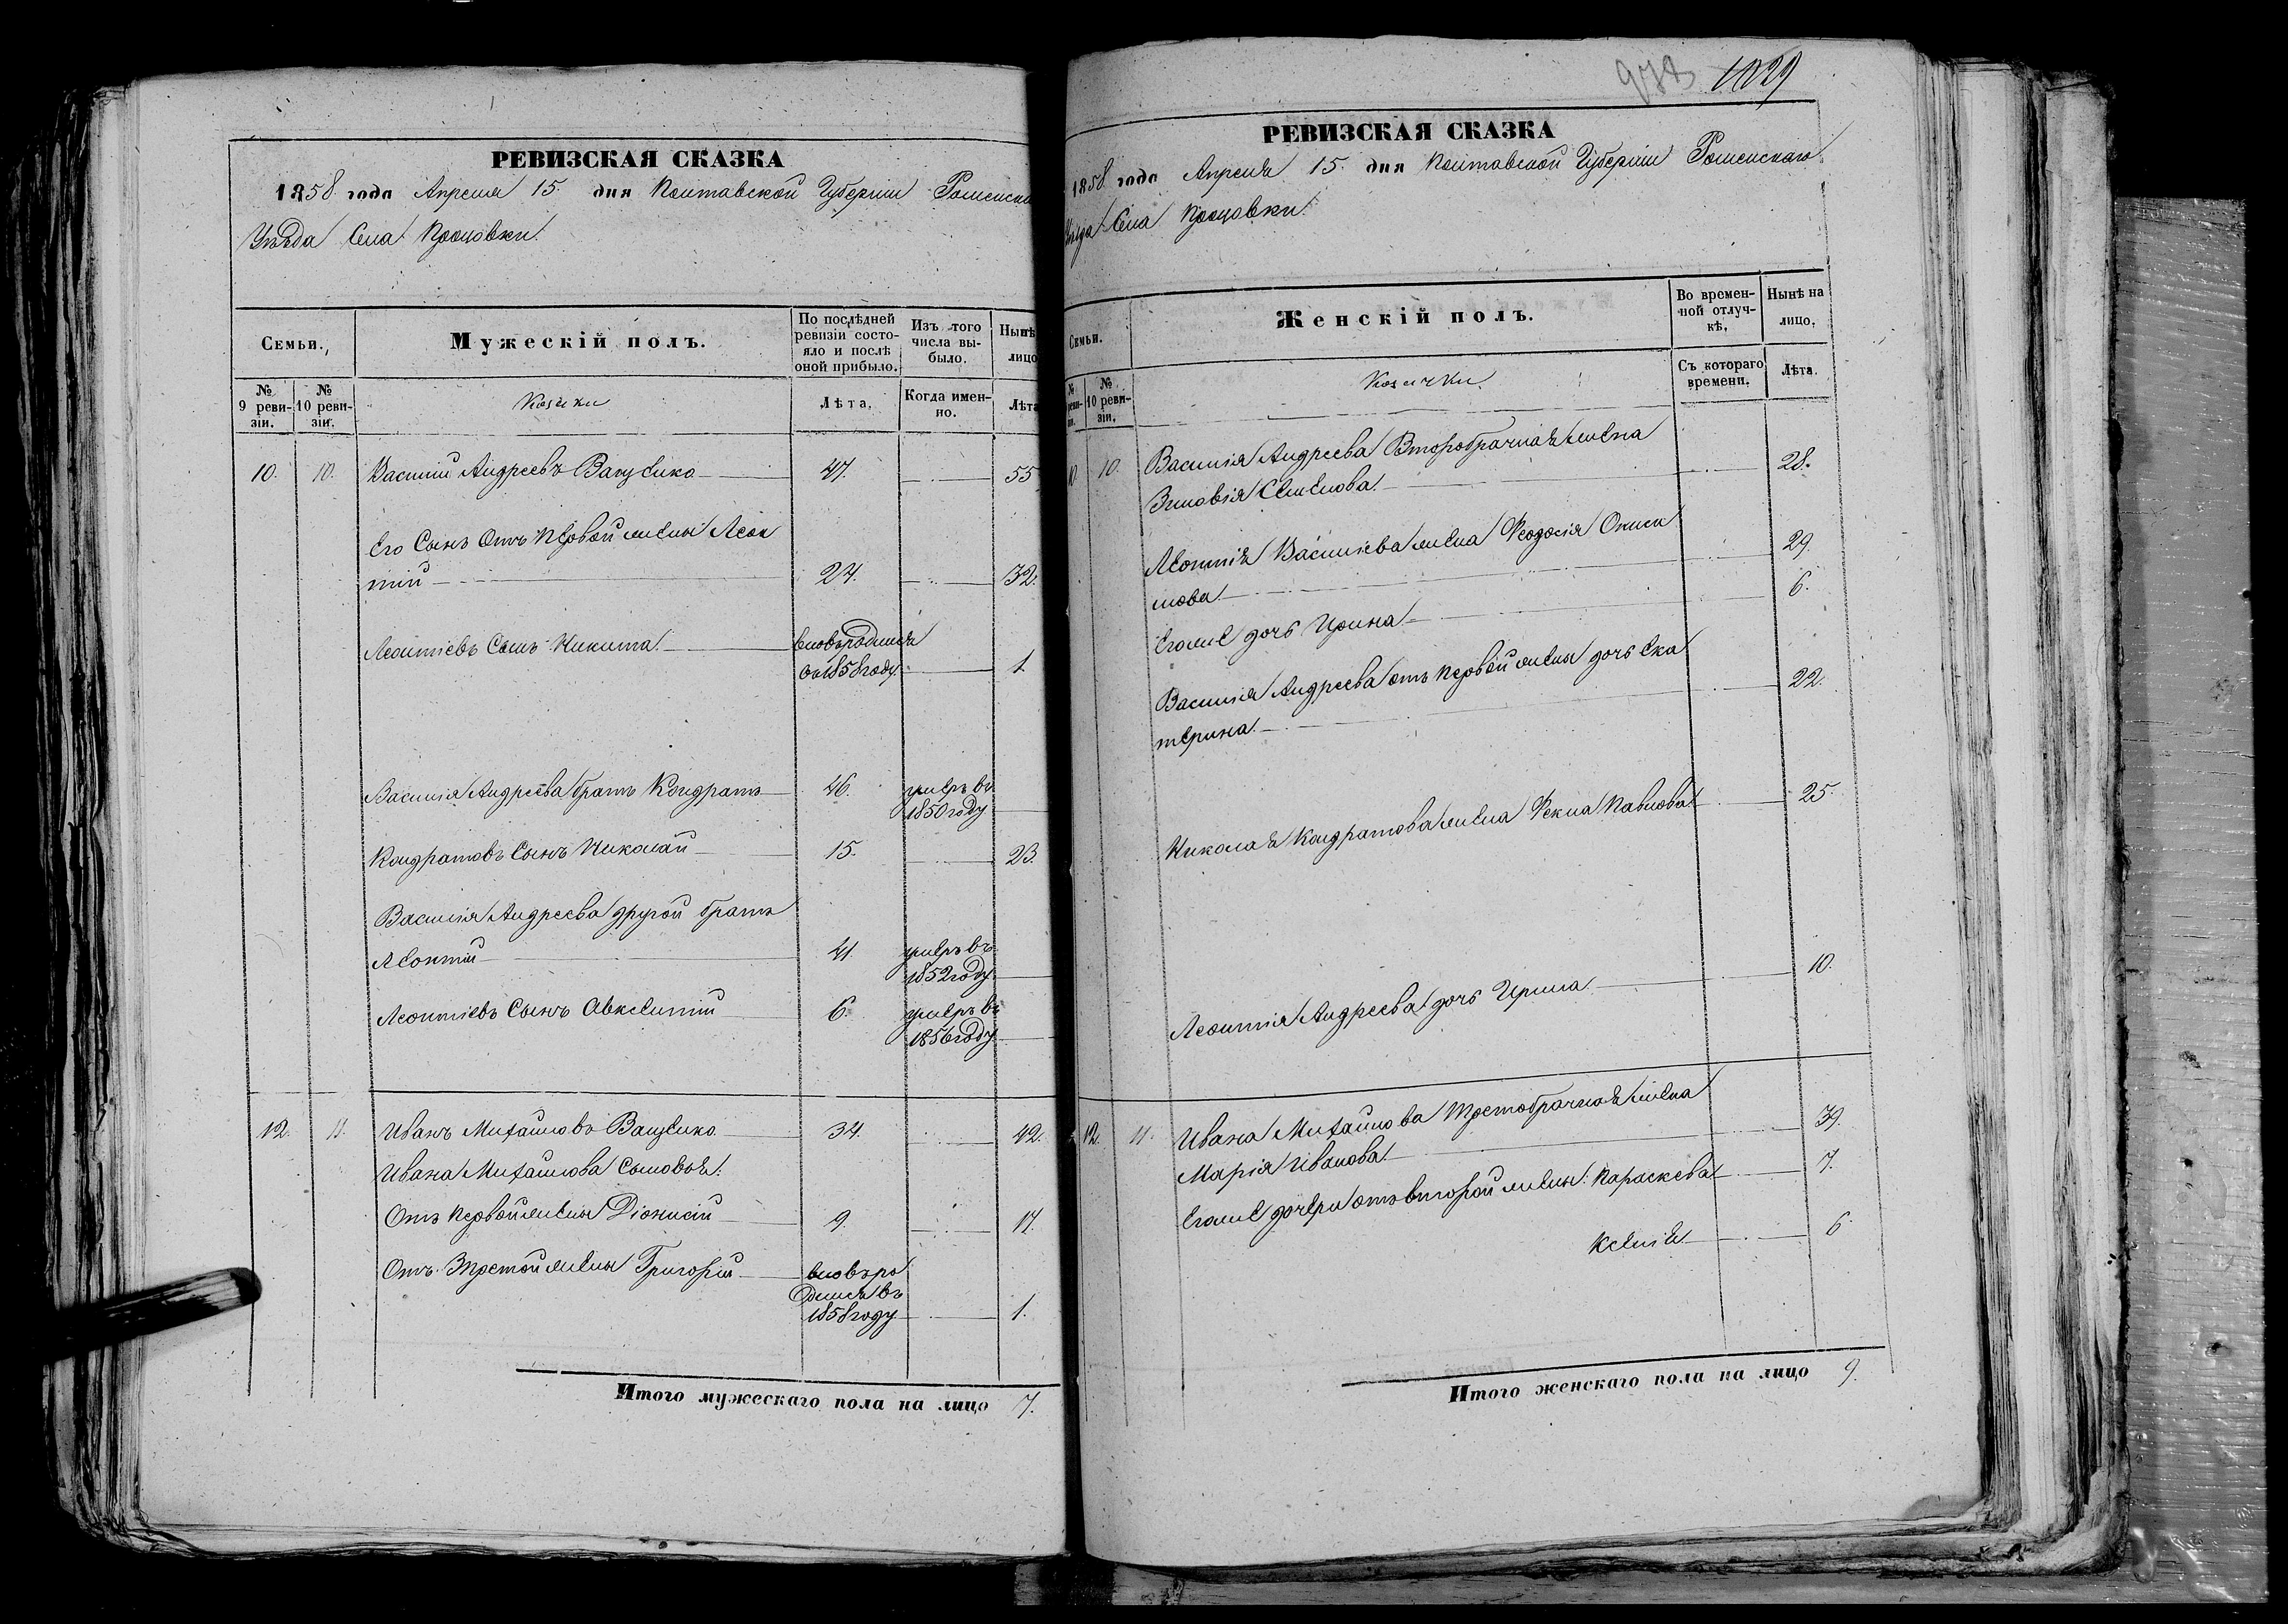 РЕВИЗСКАЯ СКАЗКА
1858 года Апреля 15 дня Полтавской Губернии Роменска
Уѣзда Села
Семьи.
Мужескій полъ.
По послѣдней ревизіи состояло и послѣ оной прибыло.
Изъ того числа выбыло.
Нынѣ лицо
№ 9 ревизіи.
№ 10 ревизіи.
Козаки
Лѣта.
Когда именно.
Лѣта
10. 10. Василий Андреевъ Ващенко 47. 55
Его Сынъ Отъ первой жены Леон
тій 24. 32.
Леонтіевъ Сынъ Никита вновь родился
въ 1858 году. 1.
Василія Андреева братъ Кондратъ 46. умеръ въ
1850 году
Кондратовъ Сынъ Николай 15. 23.
Василія Андреева другой братъ
Леонтій 41. умеръ въ
1852 году
Леонтіевъ Сынъ Авксентій 6. умеръ въ
1856 году
12. 11. Иванъ Михайловъ Ващенко 34. 42.
Ивана Михайлова Сыновья:
Отъ первой жены Діонисій 9. 17.
Отъ Третой жены Григорій вновь ро
дился въ
1858 году 1.
Итого мужескаго пола на лицо 7.
1029
РЕВИЗСКАЯ СКАЗКА
1858 года Апреля 15 дня Полтавской Губернии Роменскаго
Уѣзда Села
Семьи.
Женскій полъ.
Во временной отлучкѣ.
Нынѣ на лицо.
№ 10 ревизіи.
Козачки.
Съ котораго времени.
Лѣта.
10 10. Василія Андреева Второбрачная жена
Зиновія Семенова 28.
Леонтія Василіева жена Феодосія Онисимова 29.
Егоже дочь Ирина 6.
Василія Андреева отъ первой жены дочь Ека
терина 22.
Николая Кондратова жена Фекла Павлова 25.
Леонтія Андреева дочь Ирина 10.
12. 11. Ивана Михайлова Третобрачная жена
Марія Иванова 39.
Егоже дочери отъ второй жены: Параскева 7.
Ксенія 6.
Итого женскаго пола на лицо 9.